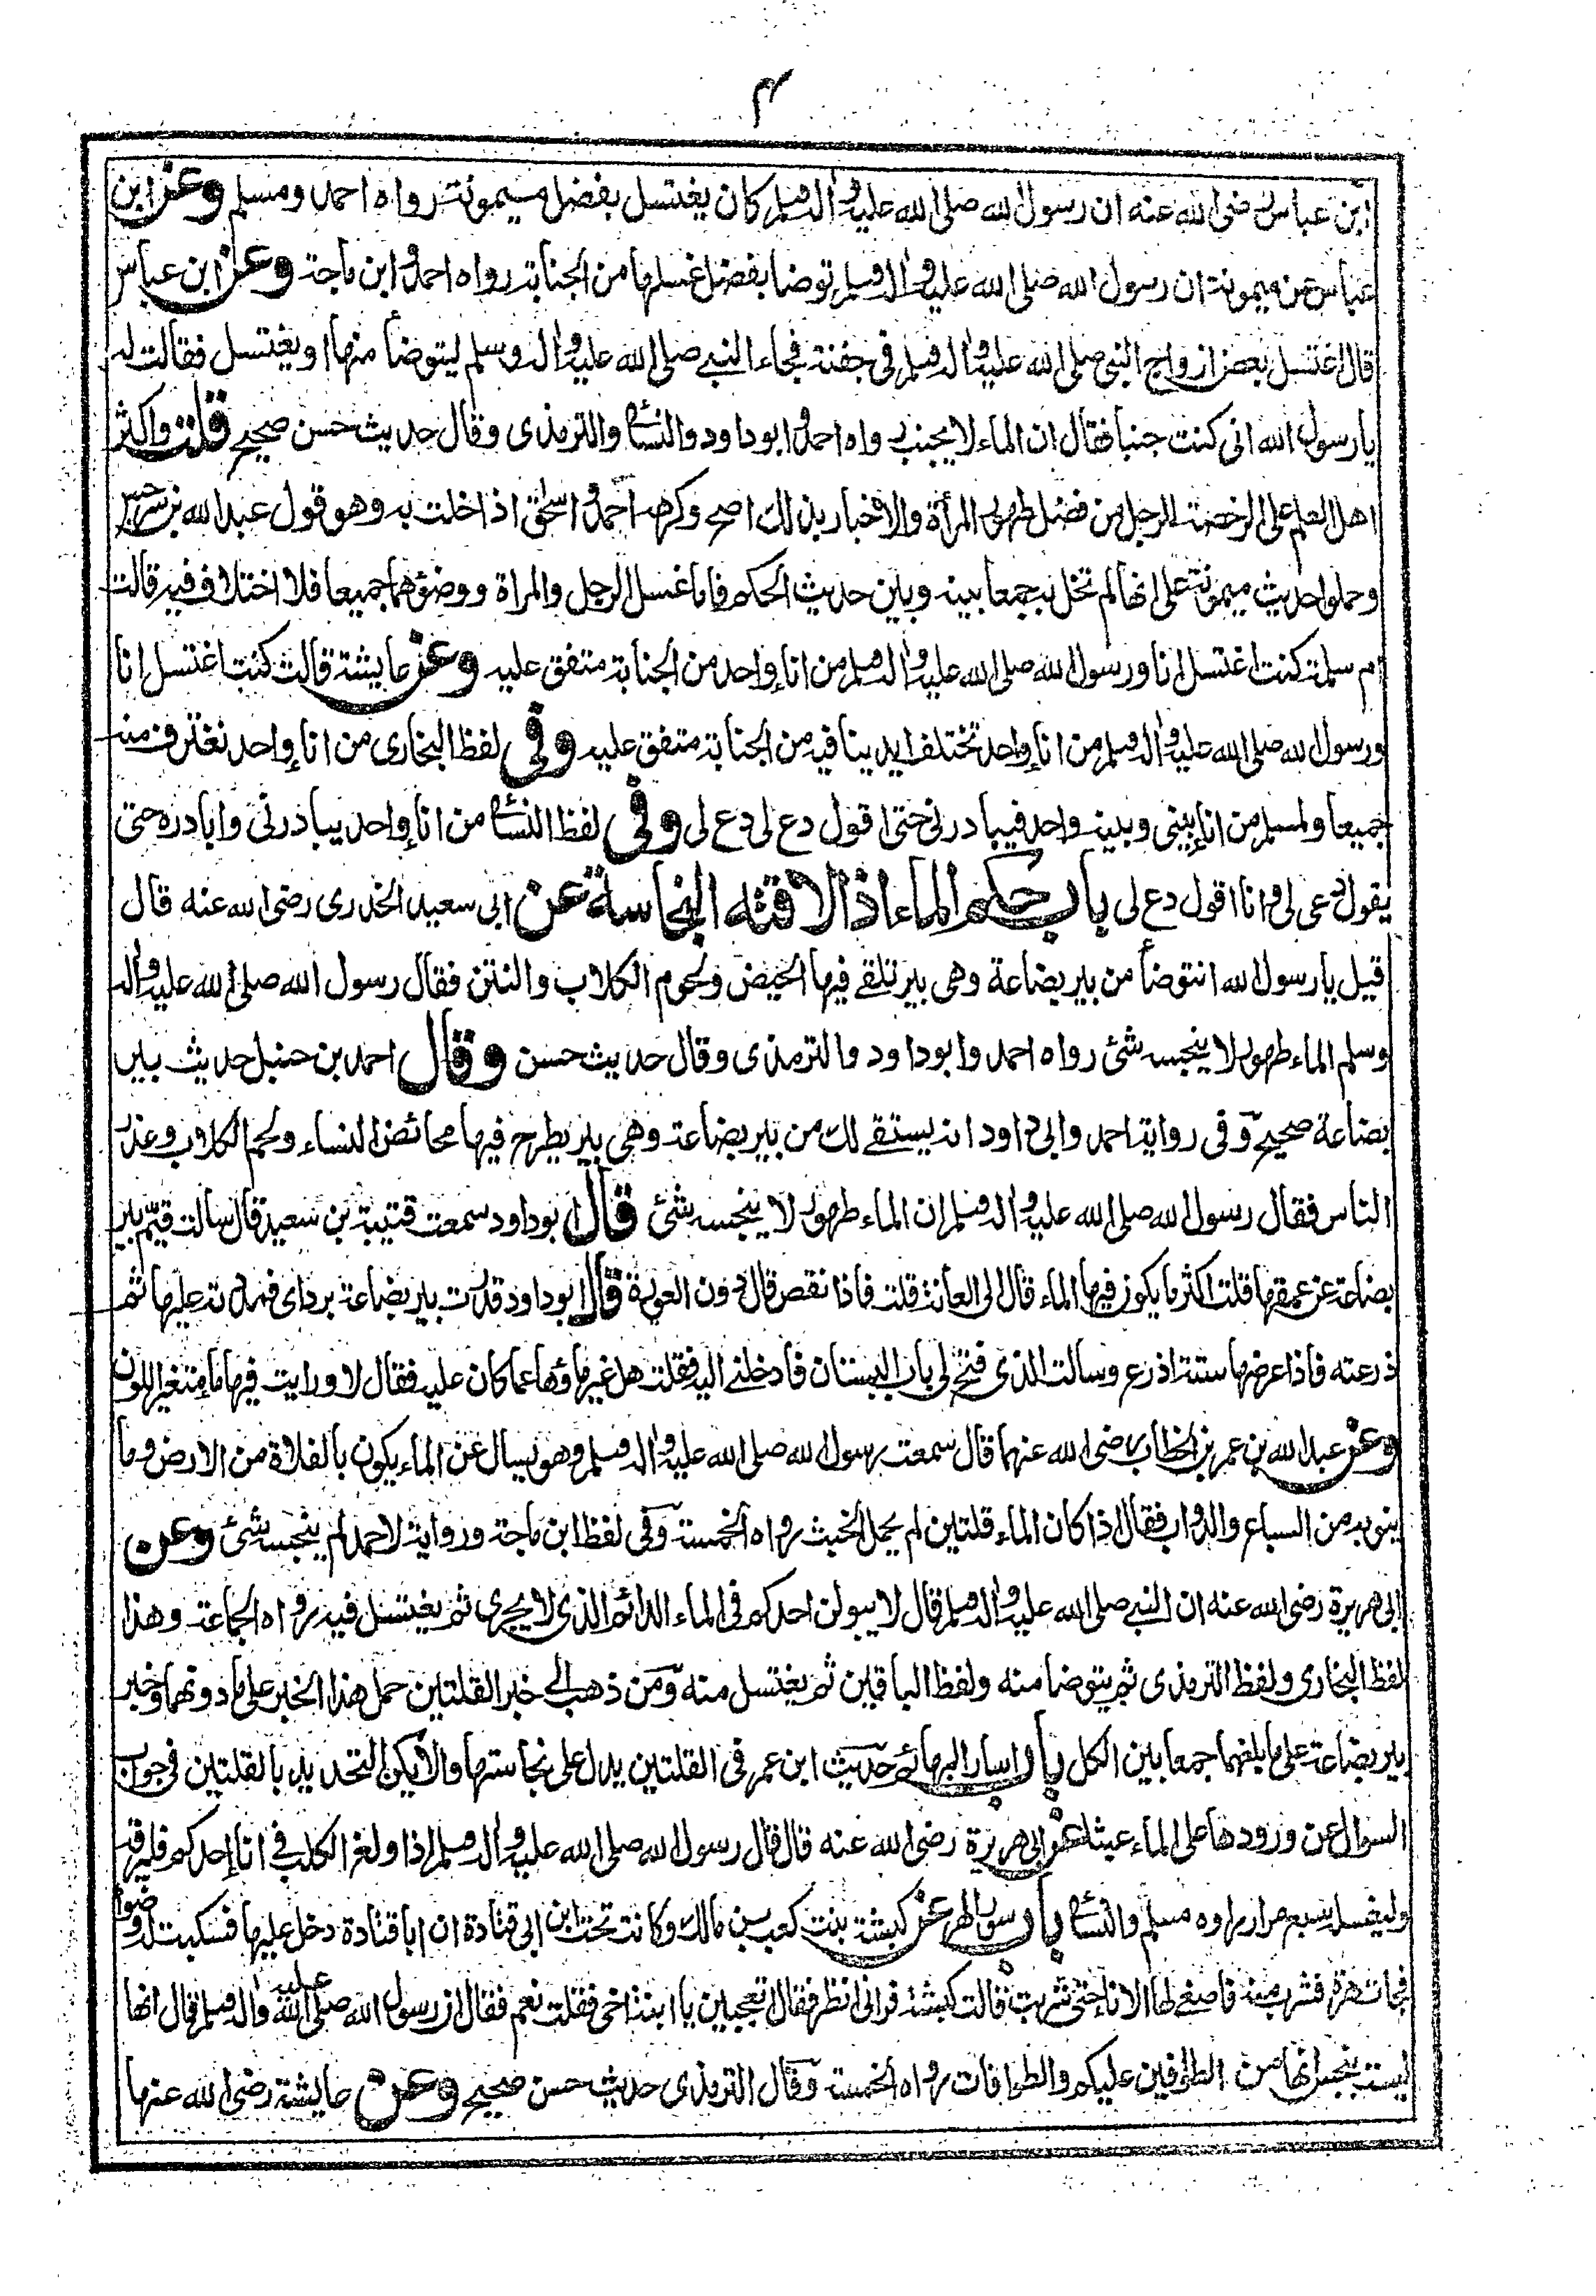 ۴
ابن عباس رضى الله عنه ان رسول الله صلى الله عليه واله وسلم كان يغتسل بفضل ميمونة رواه احمد ومسلم وعن ابن
عباس عن ميمونة ان رسول الله صلى الله عليه واله وسلم توضا بفضل غسلها من الجنابة رواه احمد وابن ماجة وعن ابن عباس
قال اغتسل بعض ازواج النبى صلى الله عليه واله وسلم فى جفنة فجاء النبى صلى الله عليه واله وسلم ليتوضأ منها او يغتسل فقالت له
يا رسول الله انى كنت جنبا فقال ان الماء لا يجنب رواه احمد وابوداود والنسائى والترمذى وقال حديث حسن صحيح قلت واكثر
اهل العلم على الرخصة للرجل من فضل طهور المرأة والاخبار بذلك اصح وكرهه احمد واسحٰق اذا خلت به وهو قول عبد الله بن سرجس
وحملوا حديث ميمونة على انها لم تخل به جمعا بينه وبين حديث الحكم فاما غسل الرجل والمراة ووضوءهما جميعا فلا اختلاف فيه قالت
ام سلمة كنت اغتسل انا ورسول الله صلى الله عليه واله وسلم من اناء واحد من الجنابة متفق عليه وعن عايشة قالت كنت اغتسل انا
ورسول الله صلى الله عليه واله وسلم من اناء واحد تختلف ايدينا فيه من الجنابة متفق عليه وفى لفظ البخارى من اناء واحد نغترف منه
جميعا ولمسلم من اناء بينى وبينه واحد فيبادرنى حتى اقول دع لى دع لى وفى لفظ النسائى من اناء واحد يبادرنى وابادره حتى
يقول دعى لى وانا اقول دع لى باب حكم الماء اذا لاقته النجاسة عن ابى سعيد الخدرى رضى الله عنه قال
قيل يا رسول الله انتوضأ من بير بضاعة وهى بير تلقى فيها الحيض ولحوم الكلاب والنتن فقال رسول الله صلى الله عليه واله
وسلم الماء طهور لا ينجسه شئ رواه احمد وابوداود والترمذى وقال حديث حسن وقال احمد بن حنبل حديث بير
بضاعة صحيح وفى رواية احمد وابى داود انه يستقى لك من بير بضاعة وهى بير يطرح فيها محائض النساء ولحم الكلاب وعذر
الناس فقال رسول الله صلى الله عليه واله وسلم ان الماء طهور لا ينجسه شئ قال ابوداود سمعت قتيبة بن سعيد قال سالت قيّم بير
بضاعة عن عمقها قلت اكثر ما يكون فيها الماء قال الى العانة قلت فاذا نقص قال دون العورة قال ابوداود قدرت بير بضاعة برداى فمددته عليها ثم
ذرعته فاذا عرضها ستة اذرع وسالت الذى فتح لى باب البستان فادخلنى اليه فقلت هل غير ماؤها عما كان عليه فقال لا ورايت فيها ما متغير اللون
وعن عبد الله بن عمر بن الخطاب رضى الله عنهما قال سمعت رسول الله صلى الله عليه واله وسلم وهو يسال عن الماء يكون بالفلاة من الارض وما
ينوبه من السباع والدواب فقال اذا كان الماء قلتين لم يحمل الخبث رواه الخمسة وفى لفظ ابن ماجة ورواية لاحمد لم ينجسه شئ وعن
ابى هريرة رضى الله عنه ان النبى صلى الله عليه واله وسلم قال لا يبولن احدكم فى الماء الدائم الذى لا يجرى ثم يغتسل فيه رواه الجماعة وهذا
لفظ البخارى ولفظ الترمذى ثم يتوضا منه ولفظ الباقين ثم يغتسل منه ومن ذهب الى خبر القلتين حمل هذا الخبر على ما دونهما وخبر
بير بضاعة على ما بلغهما جمعا بين الكل باب اسار البهائم حديث ابن عمر فى القلتين يدل على نجاستها والا يكن التحديد بالقلتين فى جواب
السوال عن ورودها على الماء عبثا عن ابى هريرة رضى الله عنه قال قال رسول الله صلى الله عليه واله وسلم اذا ولغ الكلب فى اناء احدكم فليرقه
وليغسله سبع مرار رواه مسلم والنسائى باب سور الهر عن كبشة بنت كعب بن مالك وكانت تحت ابن ابى قتادة ان ابا قتادة دخل عليها فسكبت له وضوأ
فجات هرة فشرب منه فاصغى لها الاناء حتى شربت قالت كبشة فرانى انظر فقال تعجبين يا ابنة اخى فقلت نعم فقال ان رسول الله صلى الله عليه واله وسلم قال انها
ليست بنجس انها من الطوافين عليكم والطوافات رواه الخمسة وقال الترمذى حديث حسن صحيح وعن عايشة رضى الله عنها